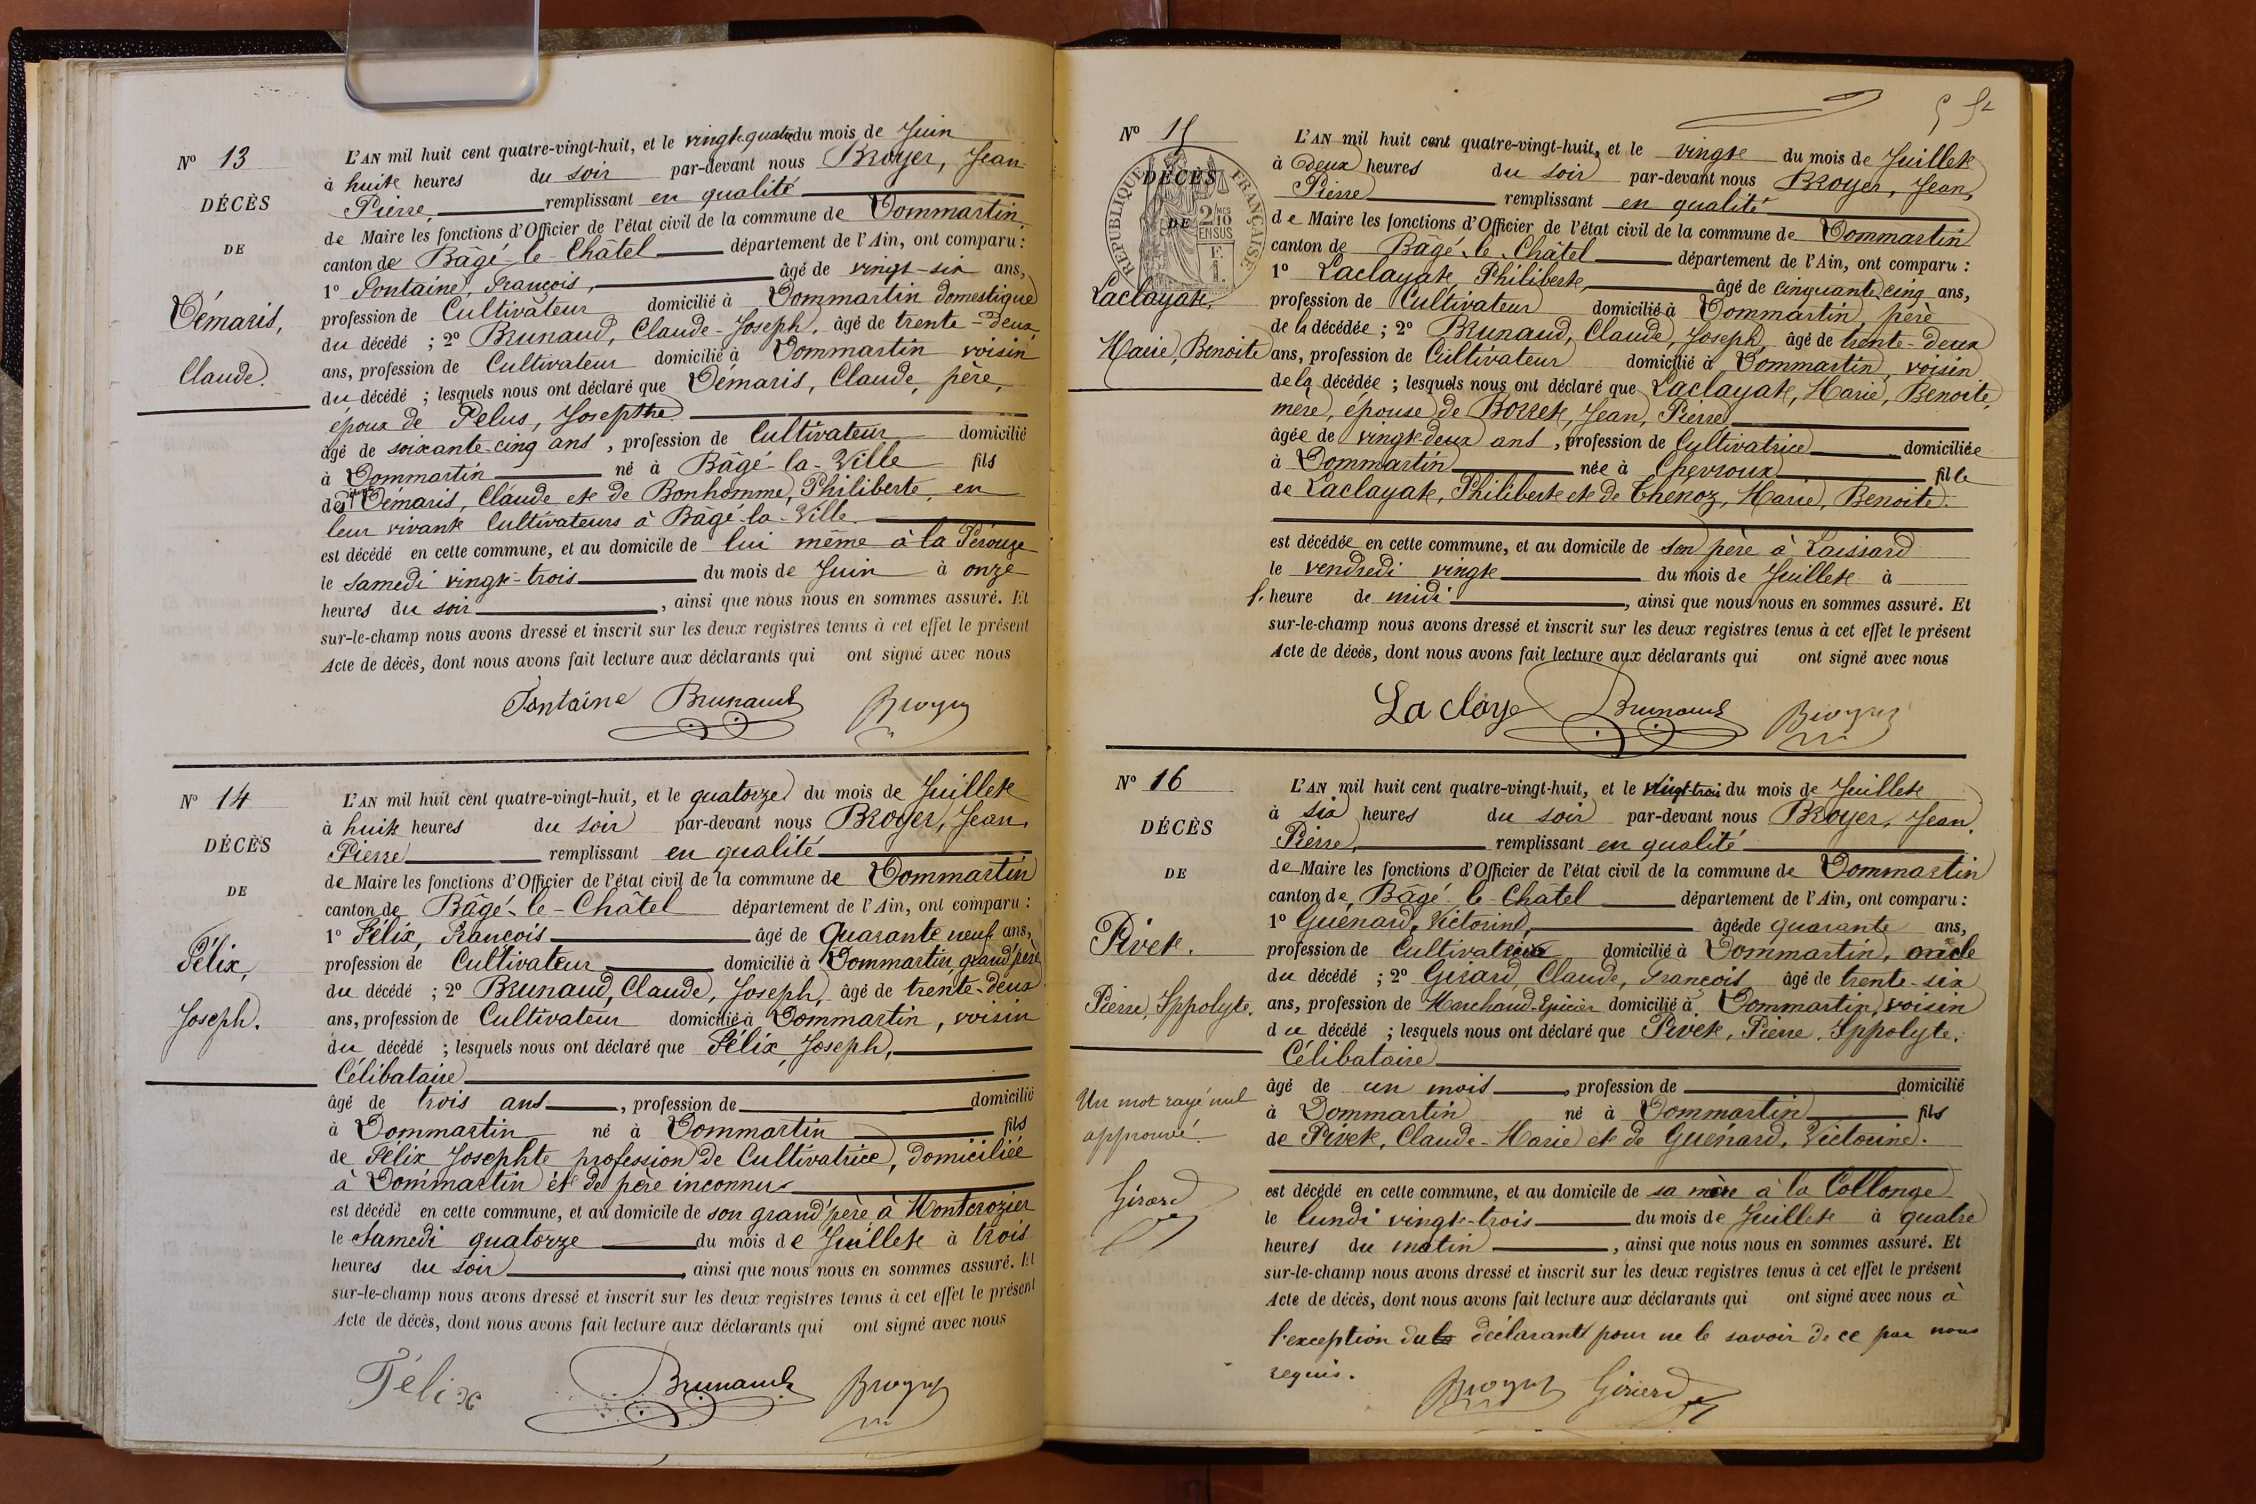 N° 13
DÉCÈS
DE
Démaris,
Claude.
L'AN mil huit cent quatre-vingt-huit, et le vingt-quatre du mois de Juin
à huit heures du soir par-devant nous Broyer, Jean
Pierre, remplissant en qualité
de Maire les fonctions d'Officier de l'état civil de la commune de Dommartin
canton de Bâgé-le-Châtel département de l'Ain, ont comparu :
1° Fontaine, François, âgé de vingt-six ans,
profession de Cultivateur domicilié à Dommartin domestique
du décédé ; 2° Brunaud, Claude-Joseph, âgé de trente-deux
ans, profession de Cultivateur domicilié à Dommartin voisin
du décédé ; lesquels nous ont déclaré que Démaris, Claude, père,
époux de Pelus, Josepthe
âgé de soixante-cinq ans, profession de Cultivateur domicilié
à Dommartin né à Bâgé-la-Ville fils
de Démaris, Claude et de Bonhomme, Philiberte, en
leur vivant Cultivateurs à Bâgé-la-Ville.
est décédé en cette commune, et au domicile de lui même à la Pérouze
le Samedi vingt-trois du mois de Juin à onze
heures du soir, ainsi que nous nous en sommes assuré. Et
sur-le-champ nous avons dressé et inscrit sur les deux registres tenus à cet effet le présent
Acte de décès, dont nous avons fait lecture aux déclarants qui ont signé avec nous
Fontaine Brunaud Broyer
N° 14
DÉCÈS
DE
Félix,
Joseph.
L'AN mil huit cent quatre-vingt-huit, et le quatorze du mois de Juillet
à huit heures du soir par-devant nous Broyer, Jean,
Pierre remplissant en qualité
de Maire les fonctions d'Officier de l'état civil de la commune de Dommartin
canton de Bâgé-le-Châtel département de l'Ain, ont comparu :
1° Félix, François âgé de Quarante neuf ans,
profession de Cultivateur domicilié à Dommartin, grand'père
du décédé ; 2° Brunaud, Claude, Joseph, âgé de trente-deux
ans, profession de Cultivateur domicilié à Dommartin, voisin
du décédé ; lesquels nous ont déclaré que Félix, Joseph,
Célibataire
âgé de trois ans, profession de domicilié
à Dommartin né à Dommartin fils
de Félix Josephte profession de Cultivatrice, domiciliée
à Dommartin et de père inconnu
est décédé en cette commune, et au domicile de son grand'père à Montcrozier
le Samedi quatorze du mois de Juillet à trois
heures du soir, ainsi que nous nous en sommes assuré. Et
sur-le-champ nous avons dressé et inscrit sur les deux registres tenus à cet effet le présent
Acte de décès, dont nous avons fait lecture aux déclarants qui ont signé avec nous
Félix Brunaud Broyer
N° 15
DÉCÈS
DE
RÉPUBLIQUE FRANÇAISE
Laclayat,
Marie, Benoite
L'AN mil huit cent quatre-vingt-huit, et le vingt du mois de Juillet
à deux heures du soir par-devant nous Broyer, Jean,
Pierre remplissant en qualité
de Maire les fonctions d'Officier de l'état civil de la commune de Dommartin
canton de Bâgé-le-Châtel département de l'Ain, ont comparu :
1° Laclayat, Philibert, âgé de cinquante cinq ans,
profession de Cultivateur domicilié à Dommartin, père
de la décédée ; 2° Brunaud, Claude, Joseph, âgé de trente-deux
ans, profession de Cultivateur domicilié à Dommartin, voisin
de la décédée ; lesquels nous ont déclaré que Laclayat, Marie, Benoite,
mère, épouse de Borret, Jean, Pierre
âgée de vingt deux ans, profession de Cultivatrice domiciliée
à Dommartin née à Chevroux fille
de Laclayat, Philibert et de Thenoz, Marie, Benoite.
est décédée en cette commune, et au domicile de son père à Laissard
le vendredi vingt du mois de Juillet à
1. heure de midi, ainsi que nous nous en sommes assuré. Et
sur-le-champ nous avons dressé et inscrit sur les deux registres tenus à cet effet le présent
Acte de décès, dont nous avons fait lecture aux déclarants qui ont signé avec nous
La claye Brunaud Broyer
N° 16
DÉCÈS
DE
Pivet.
Pierre, Ippolyte.
Un mot rayé nul
approuvé.
Girard
L'AN mil huit cent quatre-vingt-huit, et le Vingt-trois du mois de Juillet
à six heures du soir par-devant nous Broyer, Jean,
Pierre, remplissant en qualité
de Maire les fonctions d'Officier de l'état civil de la commune de Dommartin
canton de Bâgé-le-Châtel département de l'Ain, ont comparu :
1° Guénard, Victorin, âgé de quarante ans,
profession de Cultivateur domicilié à Dommartin, oncle
du décédé ; 2° Girard, Claude, François âgé de trente-six
ans, profession de Marchand-Epicier domicilié à Dommartin, voisin
du décédé ; lesquels nous ont déclaré que Pivet, Pierre, Ippolyte.
Célibataire
âgé de un mois, profession de domicilié
à Dommartin né à Dommartin fils
de Pivet, Claude-Marie et de Guénard, Victorine.
est décédé en cette commune, et au domicile de sa mère à la Collonge
le lundi vingt-trois du mois de Juillet à quatre
heures du matin, ainsi que nous nous en sommes assuré. Et
sur-le-champ nous avons dressé et inscrit sur les deux registres tenus à cet effet le présent
Acte de décès, dont nous avons fait lecture aux déclarants qui ont signé avec nous à
l'exception du déclarant pour ne le savoir de ce par nous
requis.
Broyer Girard